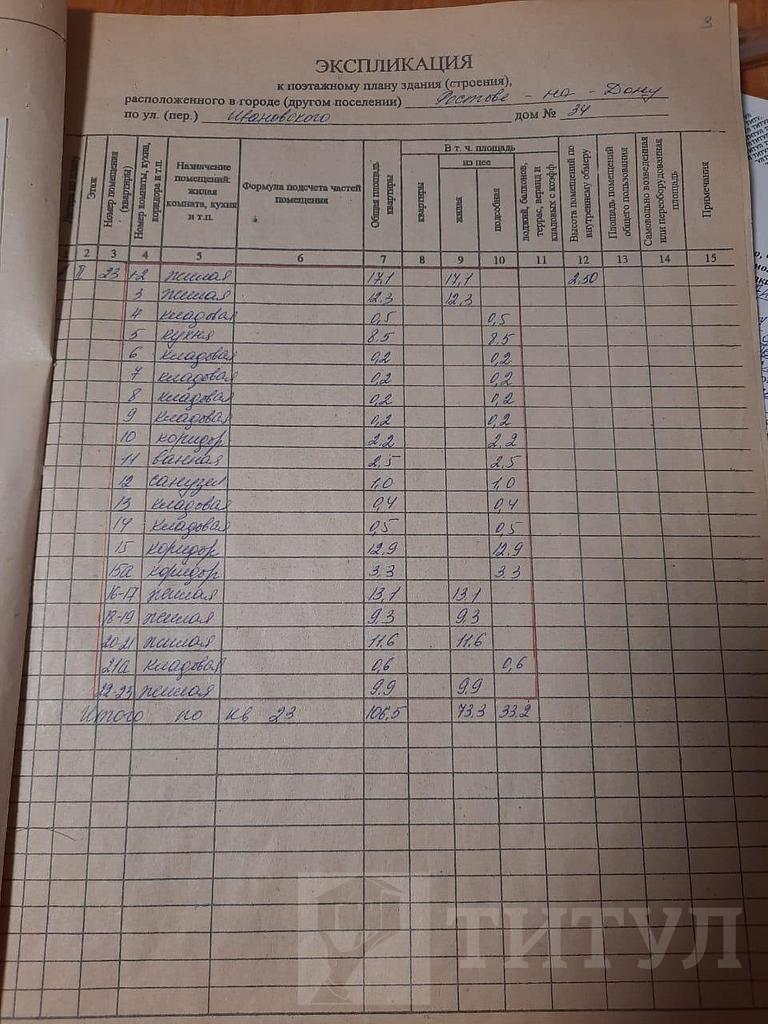 3
ЭКСПЛИКАЦИЯ
к поэтажному плану здания (строения),
расположенного в городе (другом поселении) Ростове - на - Дону
по ул. (пер.) Ивановского дом № 34
Этаж
Номер помещения (квартиры)
Номер комнаты, кухни, коридора и т.п.
Назначение помещений: жилая комната, кухня и т.п.
Формула подсчета частей помещения
Общая площадь квартиры
В т. ч. площадь
квартиры
из нее
жилая
подсобная
лоджий, балконов, террас, веранд и кладовых с коэфф.
Высота помещений по внутреннему обмеру
Площадь помещений общего пользования
Самовольно возведенная или переоборудованная площадь
Примечания
1 2 3 4 5 6 7 8 9 10 11 12 13 14 15
II 23 1-2 жилая 17,1 17,1 2.50
3 жилая 12.3 12.3
4 кладовая 0,5 0,5
5 кухня 8.5 8.5
6 кладовая 0,2 0,2
7 кладовая 0,2 0,2
8 кладовая 0,2 0,2
9 кладовая 0,2 0,2
10 коридор 2.2 2.2
11 ванная 2.5 2.5
12 санузел 1,0 1,0
13 кладовая 0,4 0,4
14 кладовая 0,5 0,5
15 коридор 12.9 12.9
15а коридор 3.3 3.3
16-17 жилая 13,1 13,1
18-19 жилая 9.3 9.3
20-21 жилая 11.6 11.6
21а кладовая 0,6 0,6
22-23 жилая 9.9 9.9
Итого по кв 23 106,5 73.3 33.2
ТИТУЛ